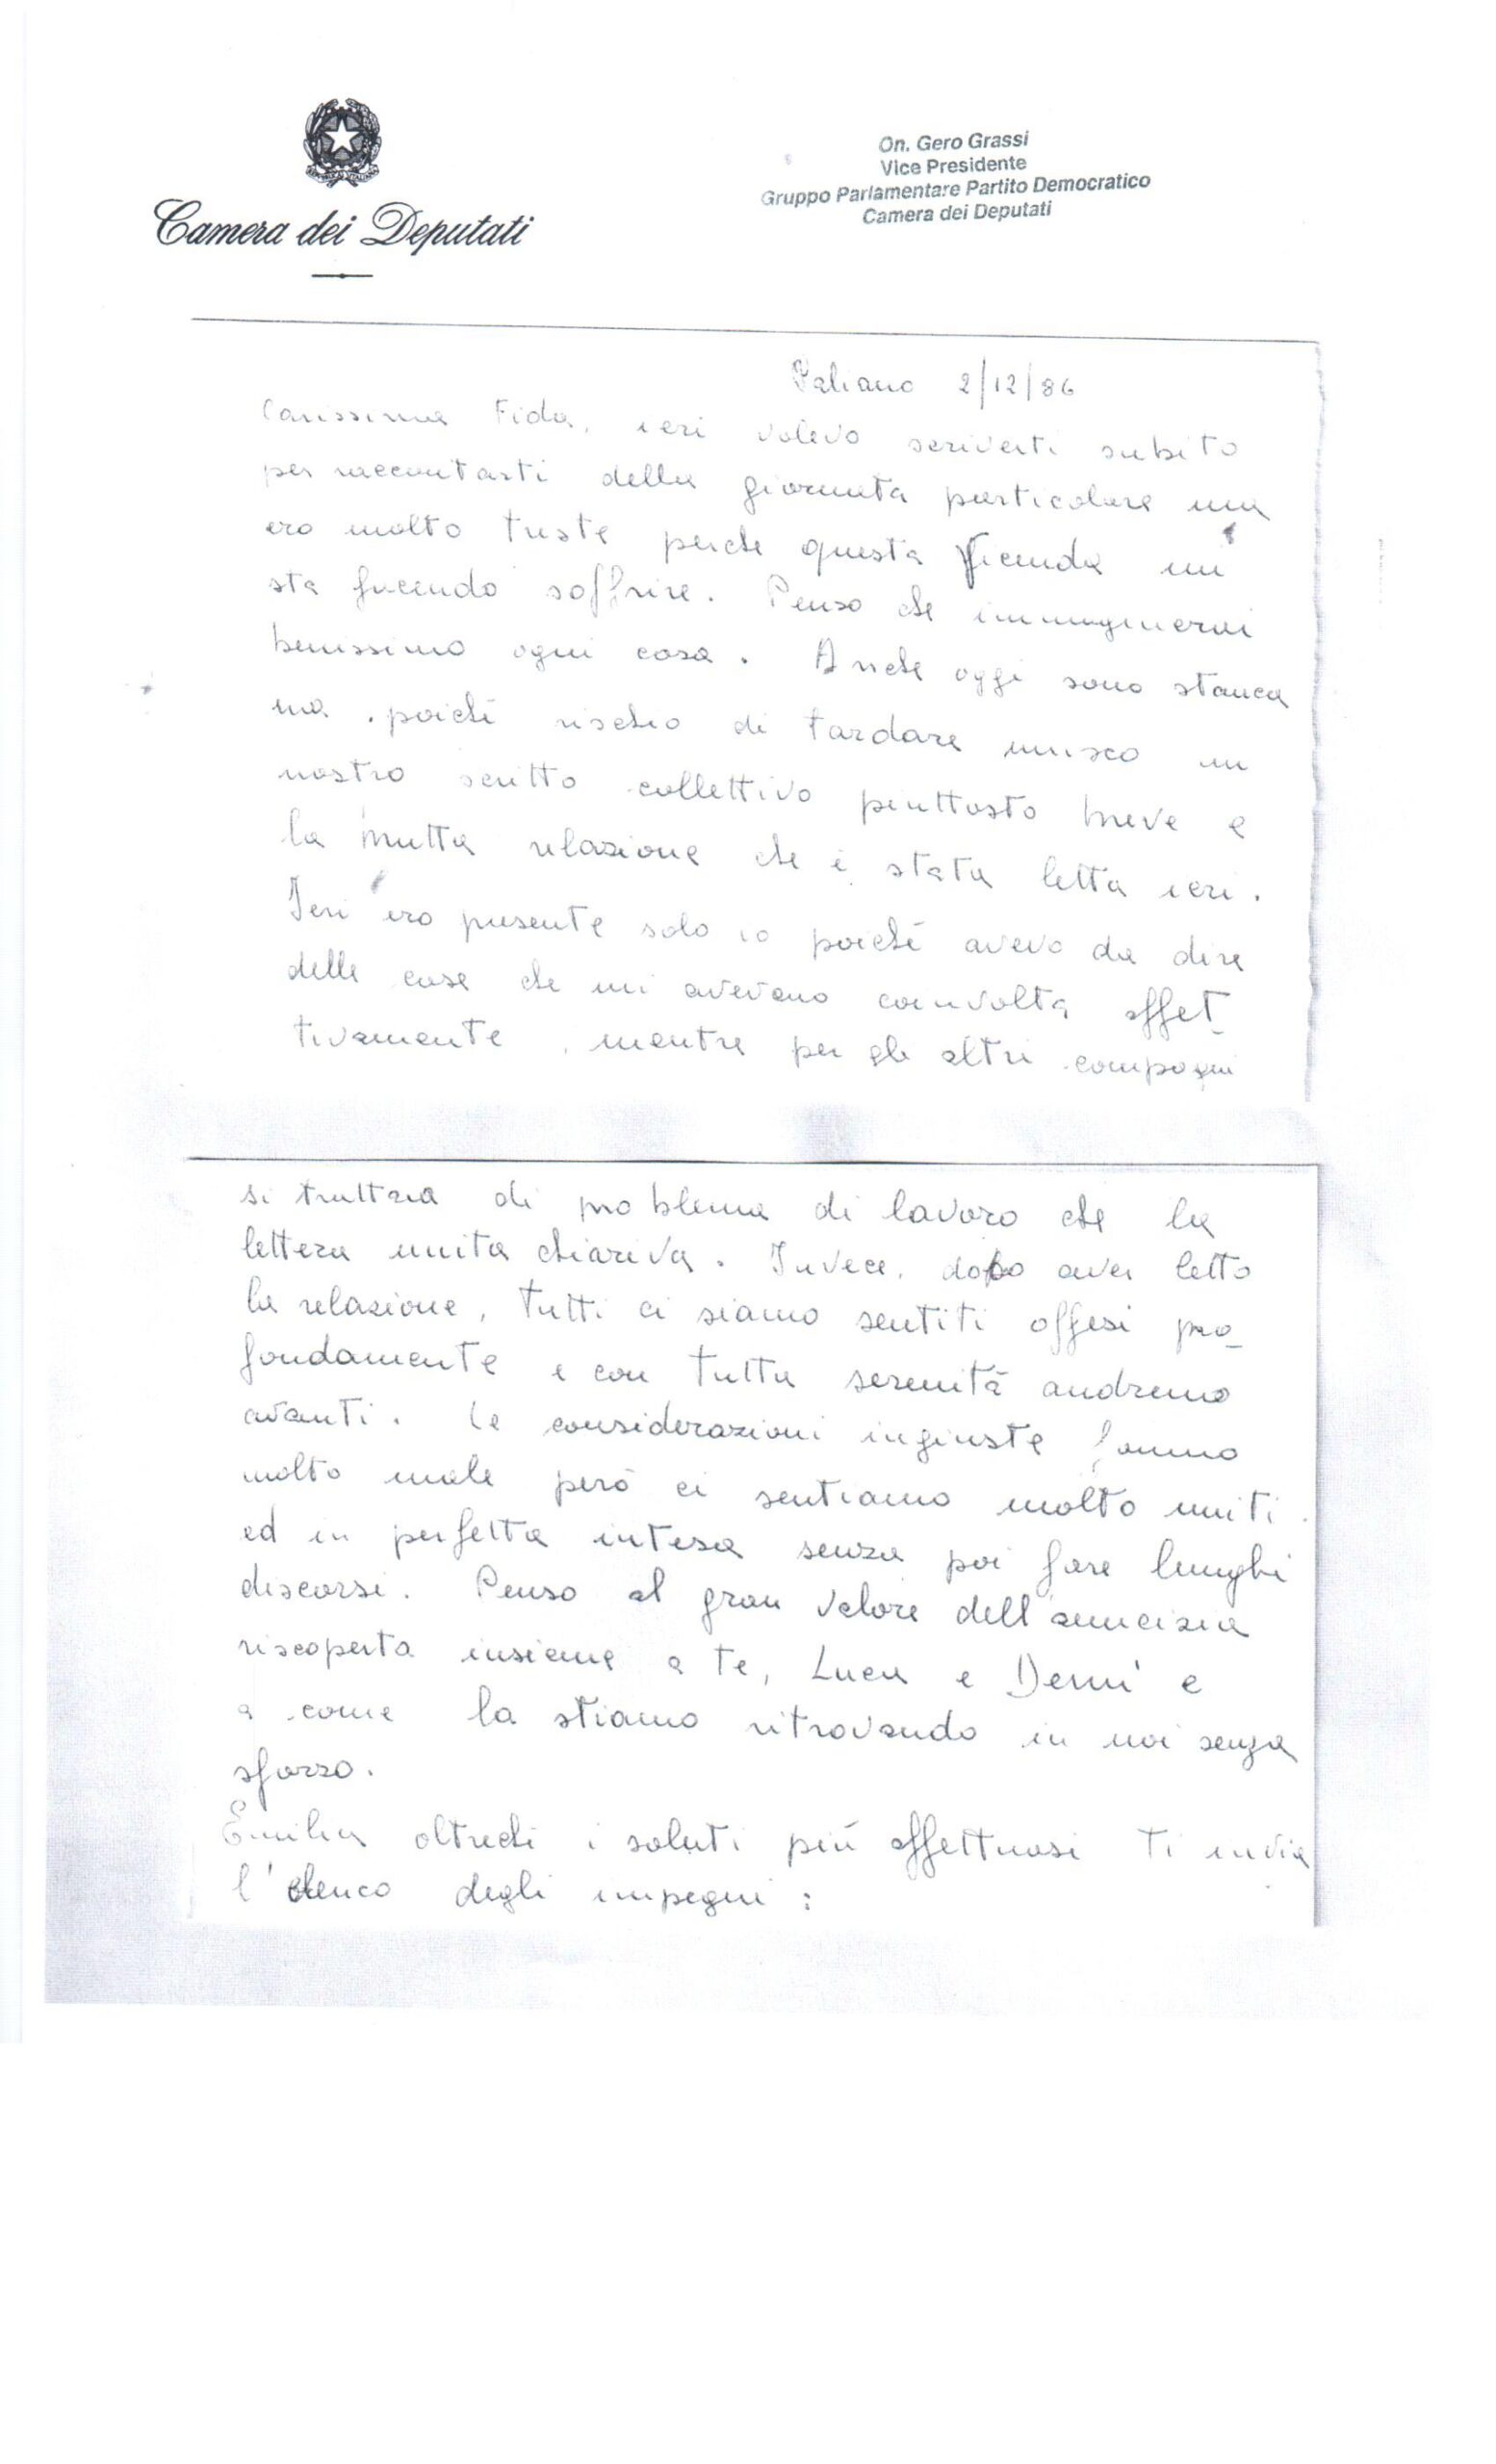 Camera dei Deputati
On. Gero Grassi
Vice Presidente
Gruppo Parlamentare Partito Democratico
Camera dei Deputati
Paliano 2/12/86
Carissima Fida, ieri volevo scriverti subito
per raccontarti della giornata particolare ma
ero molto triste perché questa vicenda mi
sta facendo soffrire. Penso che immaginerai
benissimo ogni cosa. Anche oggi sono stanca
ma, poiché rischio di tardare unisco un
nostro scritto collettivo piuttosto breve e
la brutta relazione che è stata letta ieri.
Ieri ero presente solo io poiché avevo da dire
delle cose che mi avevano coinvolta affet_
tivamente, mentre per gli altri compagni
si trattava di problema di lavoro che la
lettera unita chiariva. Invece, dopo aver letto
la relazione, tutti ci siamo sentiti offesi pro_
fondamente e con tutta serenità andremo
avanti. Le considerazioni ingiuste fanno
molto male però ci sentiamo molto uniti
ed in perfetta intesa senza poi fare lunghi
discorsi. Penso al gran valore dell'amicizia
riscoperta insieme a te, Luca e Demi e
a come la stiamo ritrovando in noi senza
sforzo.
Emilia oltreché i saluti più affettuosi ti invia
l'elenco degli impegni: